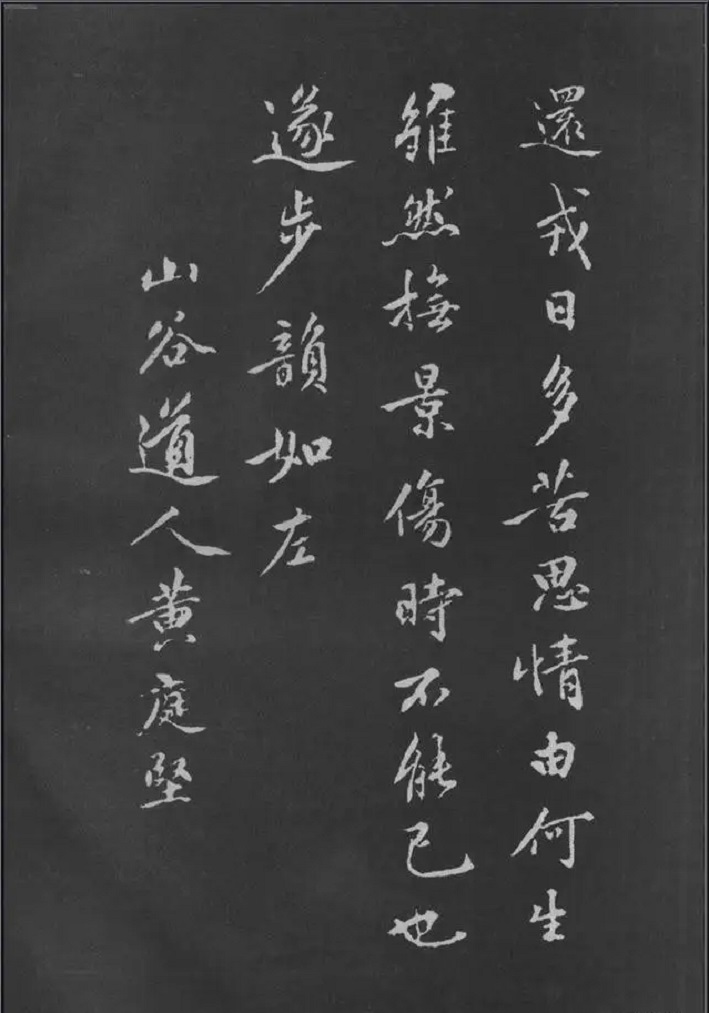 還戎日多苦思情由何生
雖然撫景傷時不能已也
遂步韻如左
山谷道人黃庭堅